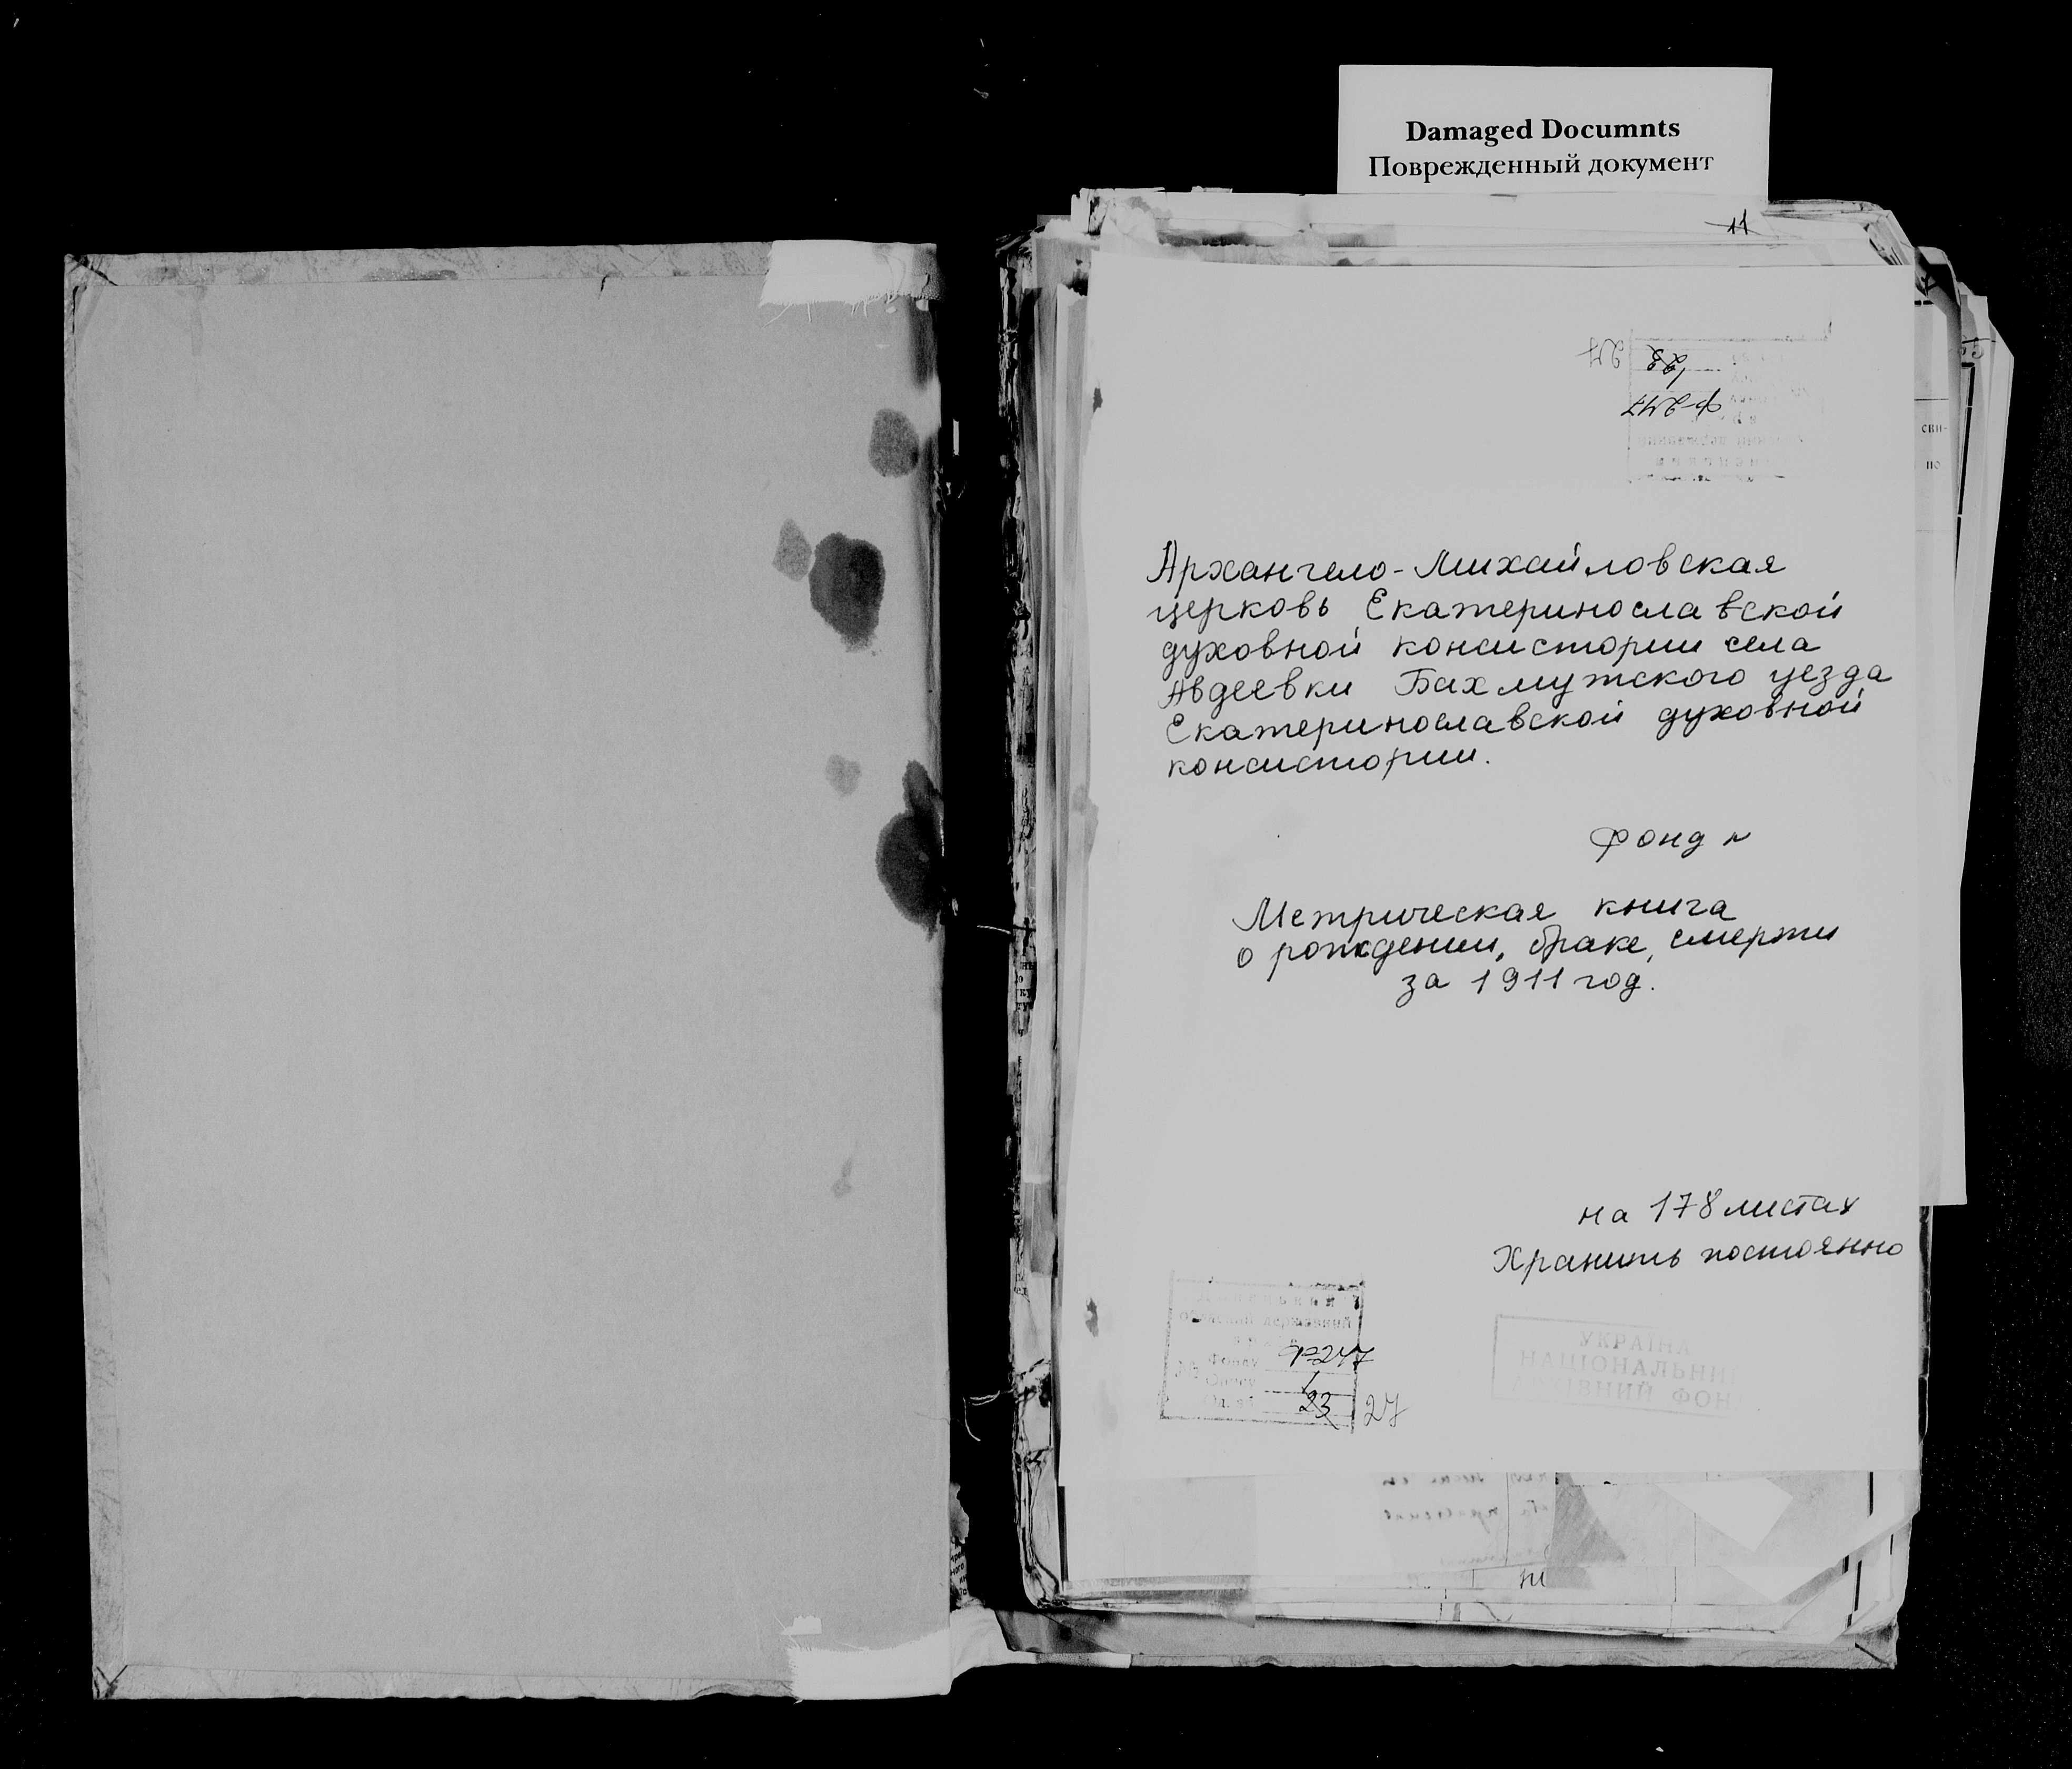 Damaged Documnts
Поврежденный документ
11
27 23
Ф-247
Архангело-Михайловская
церковь Екатеринославской
духовной консистории села
Авдеевки Бахмутского уезда
Екатеринославской духовной
консистории.
Фонд №
Метрическая книга
о рождении, браке, смерти
за 1911 год.
на 178 листах
Хранить постоянно
державний
Фонду Ф-247
Опису 1
23 27
УКРАЇНА
НАЦІОНАЛЬНИ
ІВНИЙ ФОН
сви-
по